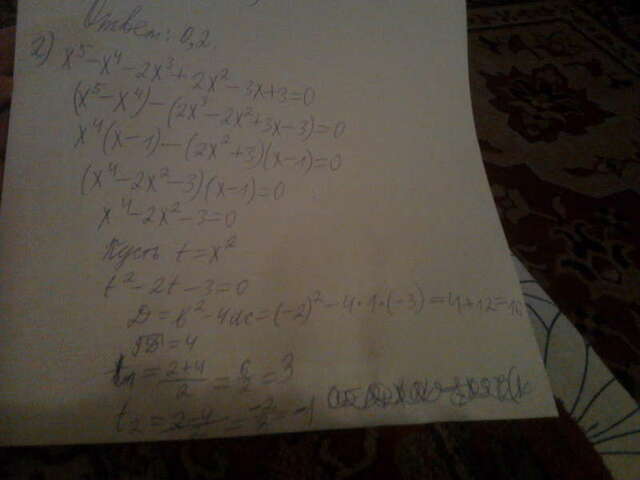 Ответ: 0,2
2) x⁵-x⁴-2x³+2x²-3x+3=0
(x⁵-x⁴)-(2x³-2x²+3x-3)=0
x⁴(x-1)-(2x²+3)(x-1)=0
(x⁴-2x²-3)(x-1)=0
x⁴-2x²-3=0
Пусть t=x²
t²-2t-3=0
D=b²-4ac=(-2)²-4·1·(-3)=4+12=16
√D=4
t₁=(2+4)/2=6/2=3
t₂=(2-4)/2=-2/2=-1